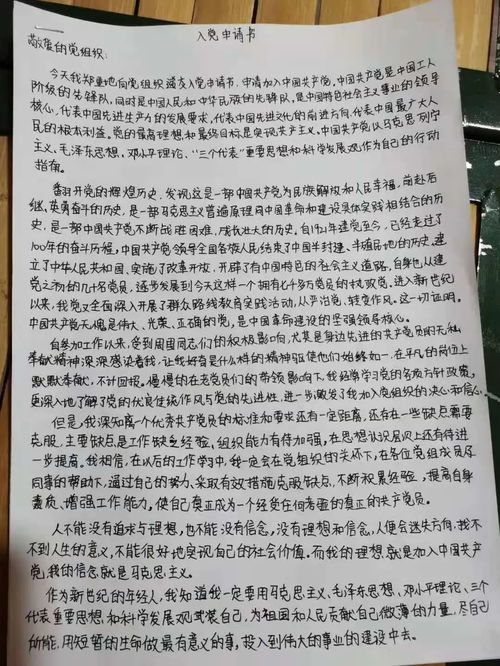 入党申请书
敬爱的党组织：
今天我郑重地向党组织递交入党申请书，申请加入中国共产党。中国共产党是中国工人
阶级的先锋队，同时是中国人民和中华民族的先锋队，是中国特色社会主义事业的领导
核心，代表中国先进生产力的发展要求，代表中国先进文化的前进方向，代表中国最广大人
民的根本利益。党的最高理想和最终目标是实现共产主义。中国共产党以马克思列宁
主义、毛泽东思想、邓小平理论、“三个代表”重要思想和科学发展观作为自己的行动
指南。
翻开党的辉煌历史，发现这是一部中国共产党为民族解放和人民幸福，前赴后
继，英勇奋斗的历史，是一部马克思主义普遍原理同中国革命和建设具体实践相结合的历
史，是一部中国共产党不断战胜困难，成长壮大的历史，自1921年建党至今，已经走过了
100年的奋斗历程，中国共产党领导全国各族人民结束了中国半封建、半殖民地的历史，建
立了中华人民共和国，实施了改革开放，开辟了有中国特色的社会主义道路，自身也从建
党之初的几十名党员，逐步发展到今天这样一个拥有6千多万党员的执政党，进入新世纪
以来，我党又全面深入开展了群众路线教育实践活动，从严治党，转变作风。这一切证明，
中国共产党无愧是伟大、光荣、正确的党，是中国革命建设的坚强领导核心。
自参加工作以来，受到周围同志们的积极影响，尤其是身边先进的共产党员的无私
奉献精神深深感染着我，让我好奇是什么样的精神驱使他们始终如一，在平凡的岗位上
默默奉献，不计回报。慢慢的在老党员们的带领影响下，我经常学习党的各项方针政策，
更深入地了解了党的优良传统作风与党的先进性，进一步激发了我加入党组织的决心和信心。
但是，我深知离个优秀共产党员的标准和要求还有一定距离，还存在一些缺点需要
克服，主要缺点是工作缺乏经验，组织能力有待加强，在思想认识层次上还有待进
一步提高。我相信，在以后的工作学习中，我一定会在党组织的关怀下，在各位党组成员及
同事的帮助下，通过自己的努力，采取有效措施克服缺点，不断积累经验，提高自身
素质、增强工作能力，使自己真正成为一个经受任何考验的真正的共产党员。
人不能没有追求与理想，也不能没有信念，没有理想和信念，人便会迷失方向，找不
不到人生的意义，不能很好地实现自己的社会价值。而我的理想就是加入中国共产
党，我的信念就是马克思主义。
作为新世纪的年轻人，我知道我一定要用马克思主义、毛泽东思想、邓小平理论、三个
代表重要思想和科学发展观武装自己，为祖国和人民贡献自己微薄的力量，尽自己
所能，用短暂的生命做最有意义的事，投入到伟大的事业的建设中去。